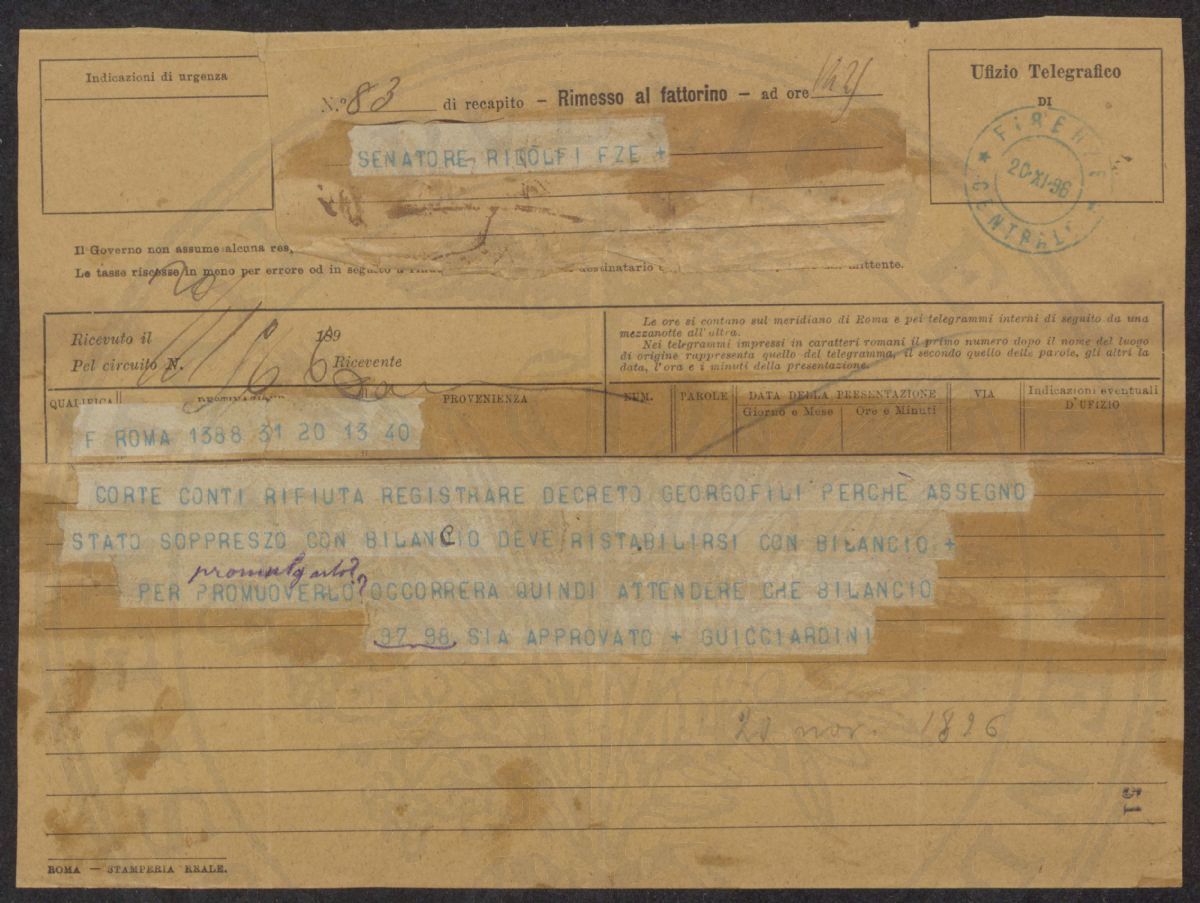 Indicazioni di urgenza
N.º 83 di recapito – Rimesso al fattorino – ad ore
Ufizio Telegrafico
DI
FIRENZE
20·XI·96
CENTRALE
SENATORE RIDOLFI FZE +
Il Governo non assume alcuna res
Le tasse riscosse in meno per errore od in seguito a rifiu destinatario mittente.
Ricevuto il 20/11 1896
Pel circuito N. Ricevente
Le ore si contano sul meridiano di Roma e pei telegrammi interni di seguito da una
mezzanotte all'altra.
Nei telegrammi impressi in caratteri romani il primo numero dopo il nome del luogo
di origine rappresenta quello del telegramma, il secondo quello delle parole, gli altri la
data, l'ora e i minuti della presentazione.
QUALIFICA DESTINAZIONE PROVENIENZA NUM. PAROLE DATA DELLA PRESENTAZIONE VIA Indicazioni eventuali
Giorno e Mese Ore e Minuti D'UFIZIO
F ROMA 1388 31 20 13 40
CORTE CONTI RIFIUTA REGISTRARE DECRETO GEORGOFILI PERCHÈ ASSEGNO
STATO SOPPRESZO CON BILANCIO DEVE RISTABILIRSI CON BILANCIO +
promulgarlo?
PER PROMUOVERLO? OCCORRERA QUINDI ATTENDERE CHE BILANCIO
97 98 SIA APPROVATO + GUICCIARDINI
20 nov. 1896
15
ROMA — STAMPERIA REALE.